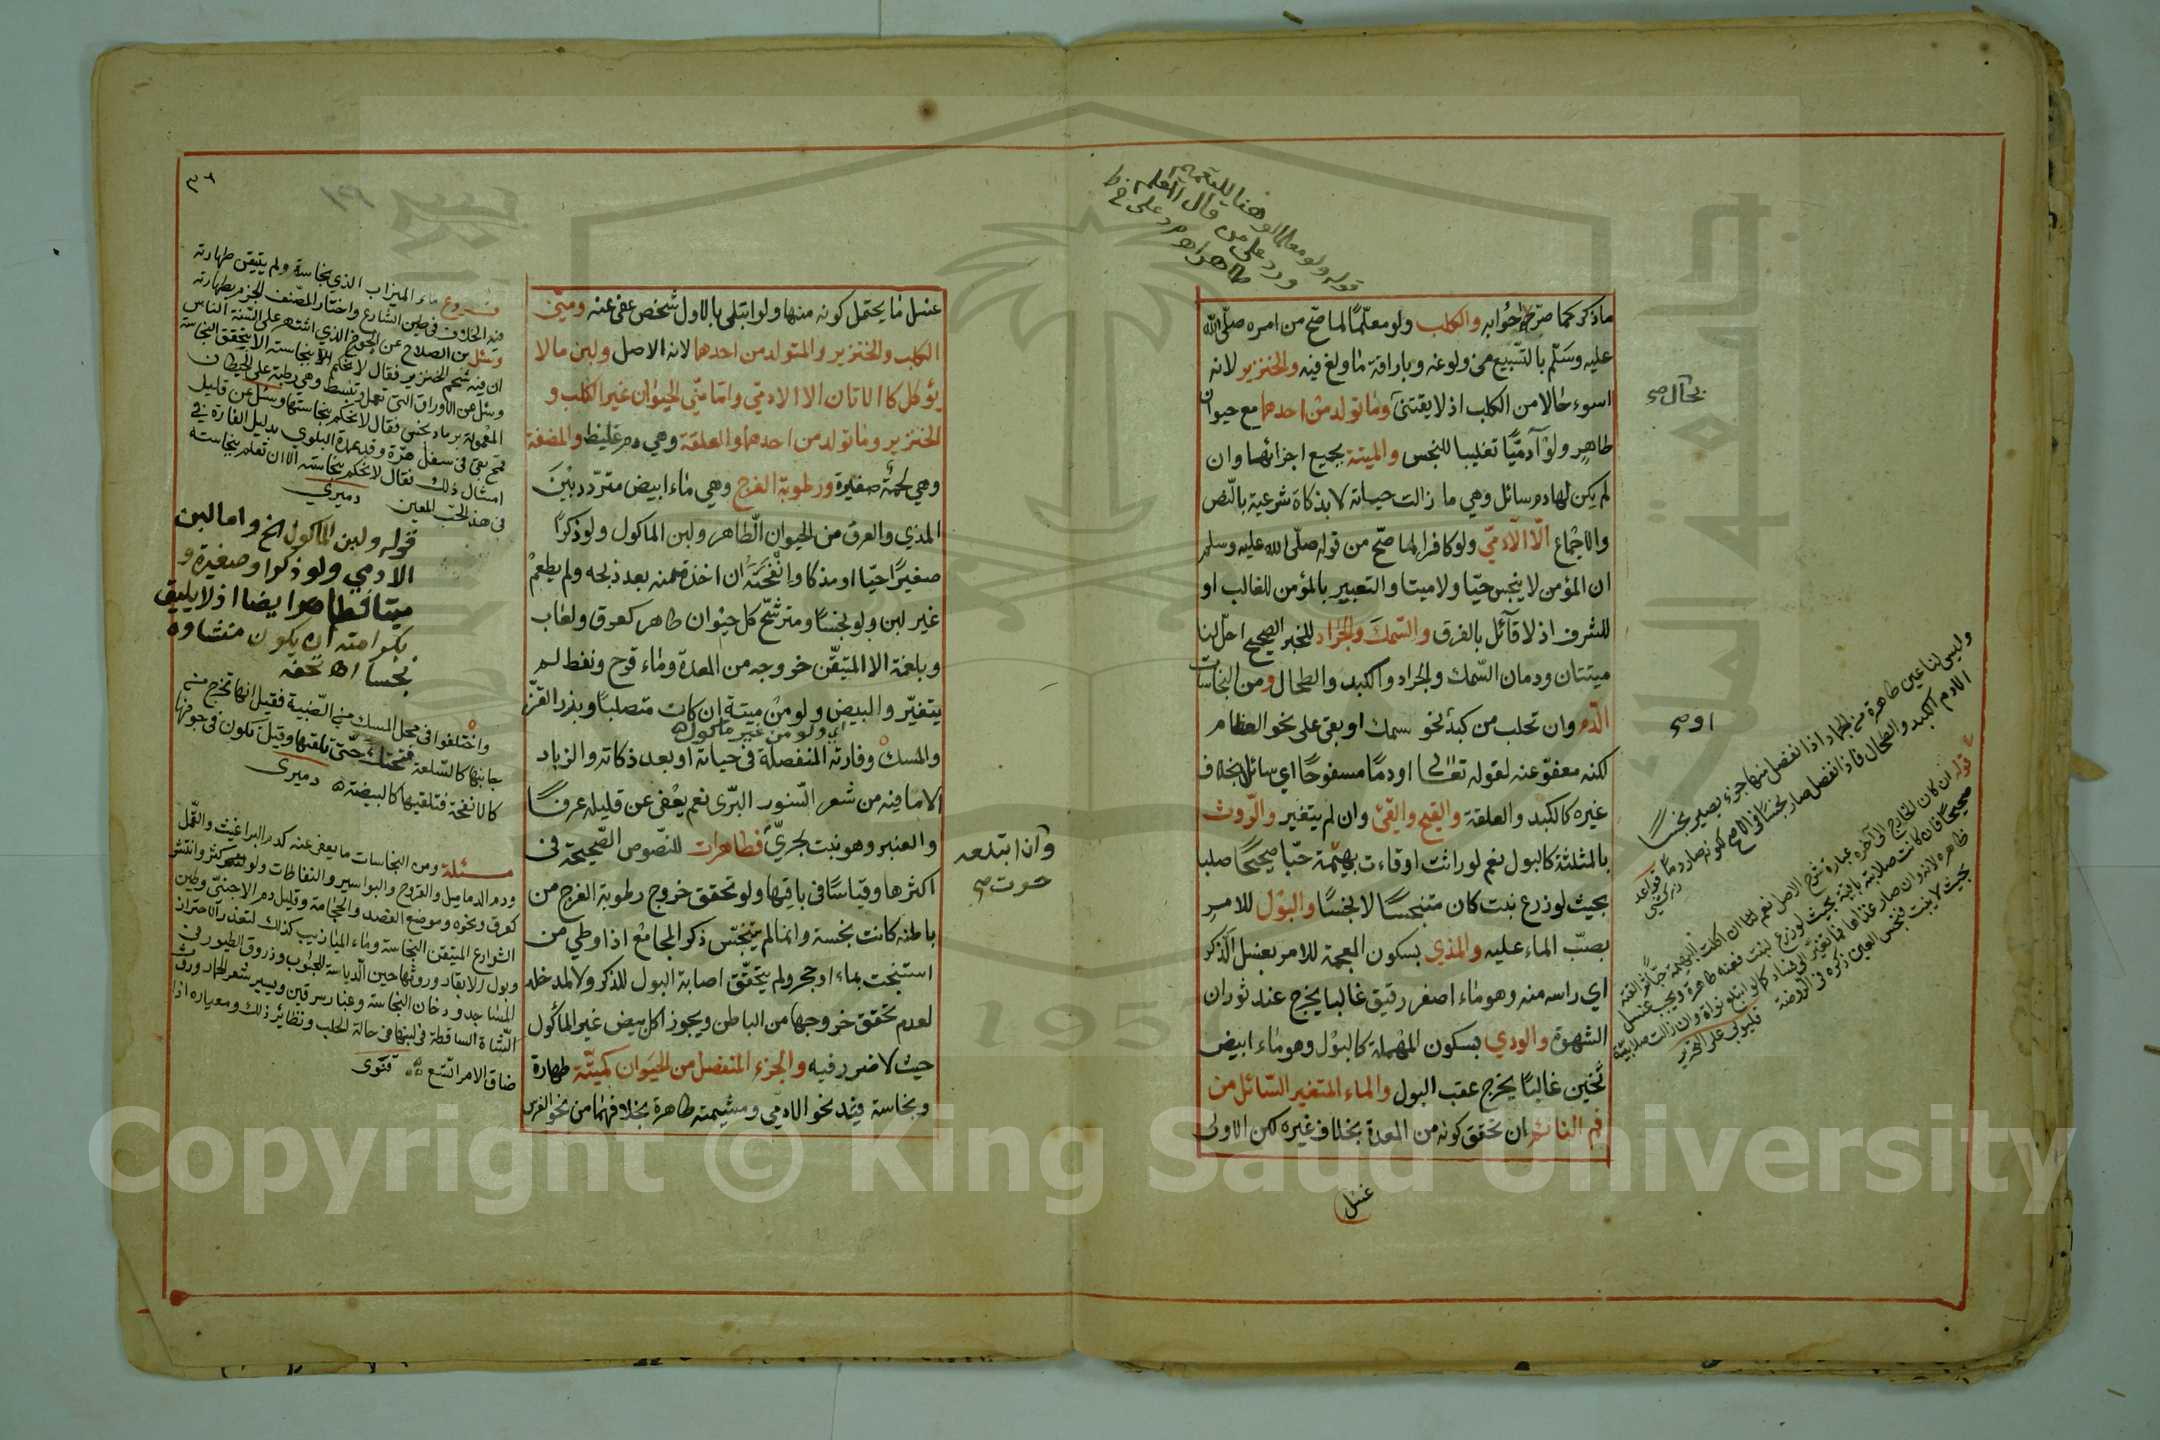 ماذكر كما صرح جوابه والكلب ولو معلّمًا لما صحّ من امره صلّى الله
عليه وسلّم بالتسبيع من ولوغه وباراقة ما ولغ فيه والخنزير لانه
اسوء حالا من الكلب اذ لا يقتنى وما تولد من احدهما مع حيوان
طاهر ولو آدميًّا تغليبا للنجس والميتة بجميع اجزائها وان
لم يكن لها دم سائل وهي ما زالت حياته لا بذكاة شرعية بالنص
والاجماع الّا الآدميّ ولو كافرا لما صحّ من قوله صلّى الله عليه وسلم
ان المؤمن لا ينجس حيّا ولا ميتا والتعبير بالمؤمن للغالب او
للشرف اذ لا قائل بالفرق والسّمك والجراد للخبر الصحيح احلّ لنا
ميتتان ودمان السّمك والجراد والكبد والطحال ومن النجاسات
الدّم وان تحلب من كبد نحو سمك او بقى على نحو العظام
لكنه معفوّ عنه لقوله تعالى او دمًا مسفوحًا اي سائل بخلاف
غيره كالكبد والعلقة والقيح والقيئ وان لم يتغير والرّوث
بالمثلثة كالبول نعم لو راثت او قاءت بهيمة حبّا صحيحًا صلبا
بحيث لو زرع نبت كان متنجسًا لا نجسًا والبول للامر
بصبّ الماء عليه والمذي بسكون المعجمة للامر بغسل الذكر
اي راسه منه وهو ماء اصفر رقيق غالبا يخرج عند ثوران
الشهوة والودي بسكون المهملة كالبول وهو ماء ابيض
ثخين غالبًا يخرج عقب البول والماء المتغير السّائل من
فم النائم ان تحقق كونه من المعدة بخلاف غيره لكن الاولى
غسل
نجال صح
او صح
وليس لنا عين طاهرة من الجماد اذا انفصل منها جزء يصير نجسًا
الا دم الكبد والطحال فاذا انفصل صار نجسًا في الاصح لكونه صار دمًا قواعد
زركشي
٣٦
غسل ما يحتمل كونه منها ولو ابتلى بالاول شخص عفى عنه ومنيّ
الكلب والخنزير والمتولد من احدهما لانه الاصل ولبن ما لا
يؤكل كالاتان الا الادميّ وامّا منيّ الحيوان غير الكلب و
الخنزير وما تولد من احدهما والعلقة وهي دم غليظ والمضغة
وهي لحمة صغيرة ورطوبة الفرج وهي ماء ابيض متردّد بين
المذي والعرق من الحيوان الطاهر ولبن الماكول ولو ذكرًا
صغيرًا حيّا او مذكا وانفحته ان اخذت منه بعد ذبحه ولم يطعم
غير لبن ولو نجسًا ومترشّح كل حيوان طاهر كعرق ولعاب
وبلغمة الا المتيقّن خروجه من المعدة وماء قروح ونفط لم
يتغيّر والبيض ولو من ميتة ان كان متصلبًا وبذر القزّ
اي ولو من غير ماكول
والمسك وفارته المنفصلة في حياته او بعد ذكاته والزباد
الا ما فيه من شعر السّنور البرّى نعم يعفى عن قليله عرفًا
والعنبر وهو نبت بحريّ فطاهرات للنّصوص الصّحيحة فى
اكثرها وقياسًا في باقيها ولو تحقق خروج رطوبة الفرج من
باطنه كانت نجسة وانما لم يتنجّس ذكر المجامع اذا وطي من
استنجت بماء او حجر ولم يتحقّق اصابة البول للذكر ولا لمدخله
لعدم تحقق خروجها من الباطن ويجوز اكل بيض غير المأكول
حيث لا ضرر فيه والجزء المنفصل من الحيوان كميتته طهارة
ونجاسة فيد نحو الادمي ومشيمته طاهرة بخلافهما من نحو الفرس
وان ابتلعه
حوت صح
فروع ماء الميزاب الذي نجاسة ولم يتيقن طهارته
فيه الخلاف في طين الشارع واختار المصنف الجزم بطهارته
وسئل بن الصلاح عن الجوخ الذي اشتهر على السنة الناس
ان فيه شحم الخنزير فقال لا يحكم بنجاسته الا بتحقق النجاسة
وسئل عن الاوراق التي تعمل وتبسط وهي رطبة على الحيطان
المعمولة برماد نجس فقال لا يحكم بنجاستها وسئل عن قليل
قمح بقى في سفل هرة وقد عمت البلوى ببول الفارة في
امثال ذلك فقال لا يحكم بنجاسته الا ان نعلم نجاسته
في هذا الحب المعين دميري
قوله ولبن المأكول الخ واما لبن
الادمي ولو ذكرا وصغيرة و
ميتا فطاهر ايضا اذ لا يليق
بكرامته ان يكون منشاوه
نجسا اه تحفه
واختلفوا في محل المسك من الظبية فقيل انها تخرج من
جانبها كالسّلعة فتحتك حتى تلقيها وقيل تكون في جوفها
كالانفحة فتلقيها كالبيضة ه دميرى
مسئلة ومن النجاسات ما يعفى عنه كدم البراغيث والقمل
ودم الدماميل والقروح والبواسير والنفاطات ولو كثر وانتشر
كعرق ونحوه وموضع الفصد والحجامة وقليل دم الاجنبيّ وطين
الشوارع المتيقن النجاسة وماء الميازيب كذلك لتعذر الاحتراز
وبول بقر وروثها حين الدياسة للحبوب وذروق الطيور في
المساجد ودخان النجاسة وغبار سرقين ويسير شعر الحمار وروث
الشاة الساقط في لبنها في حالة الحلب ونظائر ذلك ومعياره اذا
ضاق الامر اتسع فتوى
Copyright © King Saud University
1957